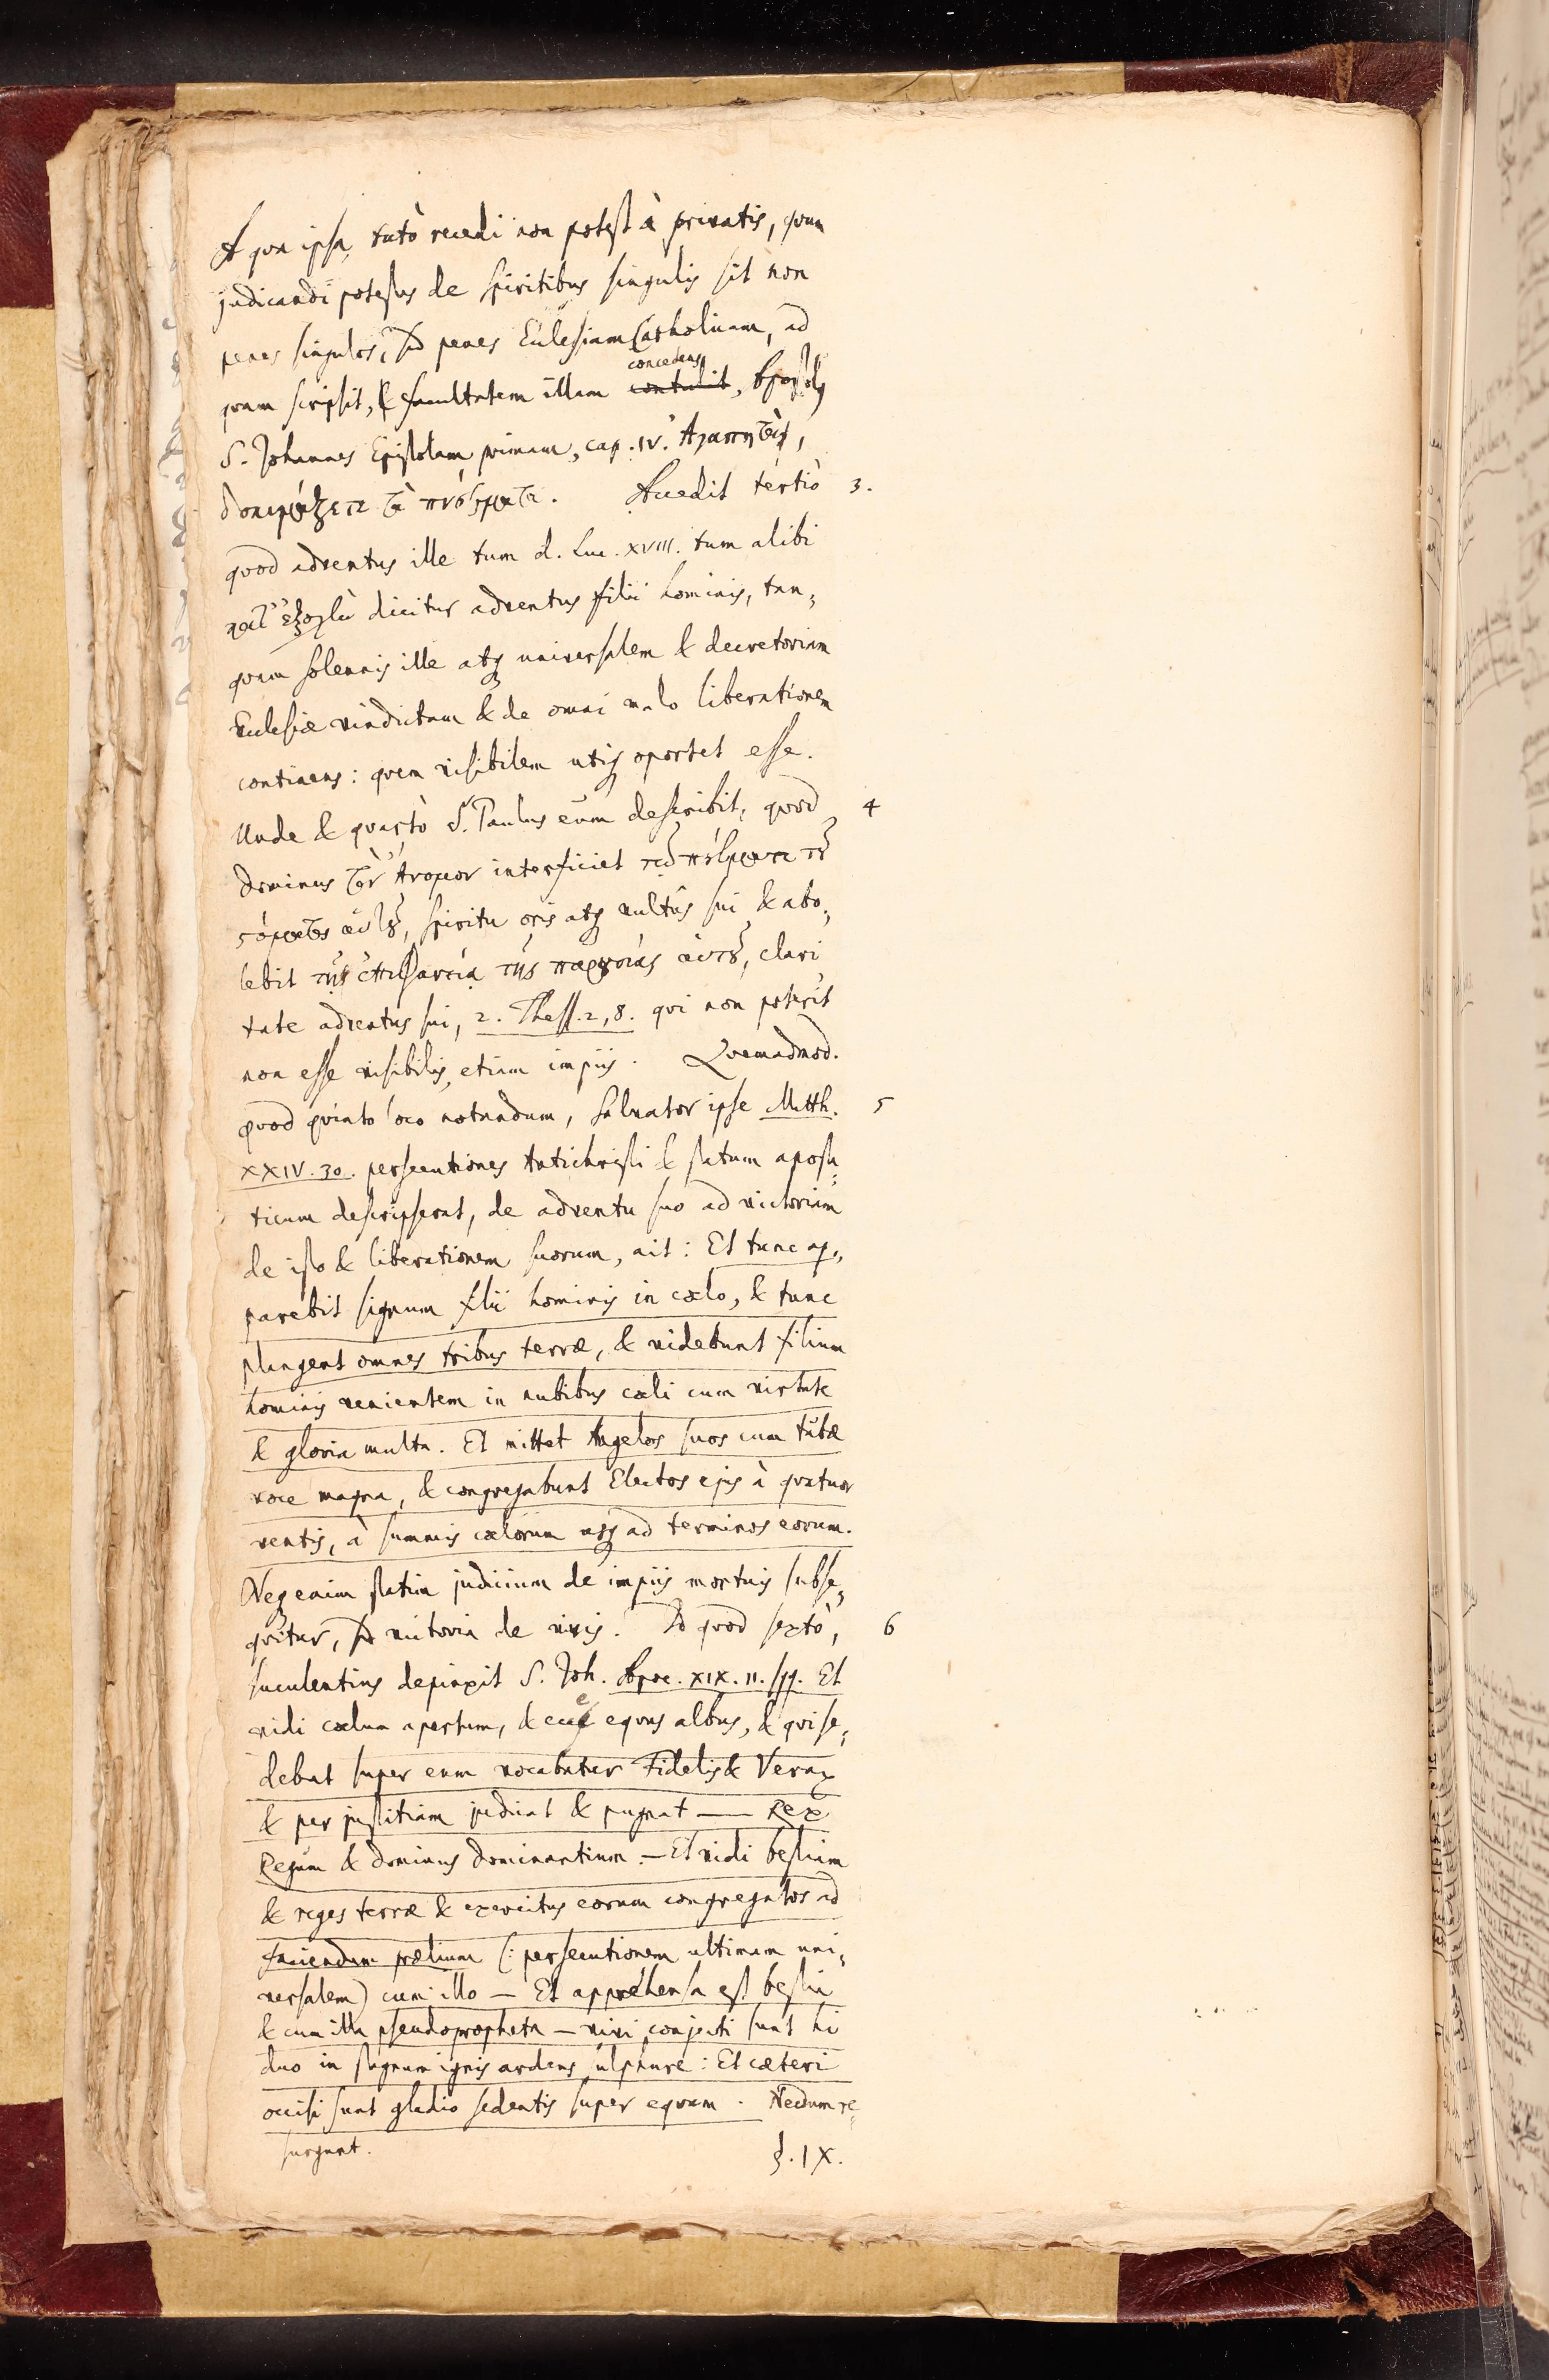 A qva ipsa tutò recedi non potest à privatis, qvum
judicandi potestas de spiritibus singulis sit non
penes singulos, sed penes Ecclesiam Catholicam, ad
concedens
qvam scripsit, & facultatem illam contulit, Apostolus
S. Johannes Epistolam primam, cap. IV. Ἀγαπητοὶ,
δοκιμάζετε τὰ πνεύματα. Accedit tertiò 3.
qvod adventus ille tum d. Luc. XVIII. tum alibi
κατ' ἐξοχὴν dicitur adventus filii hominis, tan,
qvam solennis ille atq universalem & decretoriam
Ecclesiæ vindictam & de omni malo liberationem
continens: qvem visibilem utiq oportet esse.
Unde & qvartò S. Paulus eum describit, qvod 4
Dominus τὸν Ἄνομον interficiet τῷ πνεύματι τȣ
στόματος αὐτȣ, spiritu oris atq vultûs sui & abo,
lebit τῇ ἐπιφανείᾳ τῆς παρȣσίας ἀυτȣ, clari
tate adventus sui, 2. Thess. 2, 8. qvi non poterit
non esse visibilis etiam impiis. Qvemadmod.
qvod qvinto loco notandum, Salvator ipse Matth. 5
XXIV. 30. persecutiones Antichristi & statum aposta,
ticum descripserat, de adventu suo ad victoriam
de isto & liberationem suorum, ait: Et tunc ap,
parebit signum filii hominis in cœlo, & tunc
plangent omnes tribus terræ, & videbunt filium
hominis venientem in nubibus cæli cum virtute
& gloria multa. Et mittet Angelos suos cum tubæ
voce magna, & congregabunt Electos ejus à qvatuor
ventis, à summis cælorum usq ad terminos eorum.
Neq enim statim judicium de impiis mortuis subse,
qvitur, sed victoria de vivis. Id qvod sextò, 6
luculentius depinxit S. Joh. Apoc. XIX. 11. sqq. Et
vidi cælum apertum, & ecce eqvus albus, & qvi se,
debat super eum vocabatur Fidelis & Verax
& per justitiam judicat & pugnat — Rex
Regum & Dominus Dominantium. — Et vidi bestiam
& reges terræ & exercitus eorum congregatos ad
faciendum prælium (: persecutionem ultimam uni,
versalem) cum illo — Et apprehensa est bestia
& cum illa pseudopropheta — vivi conjecti sunt hi
duo in stagnum ignis ardens sulphure: Et cæteri
occisi sunt gladio sedentis super eqvum. Necdum re,
surgunt.
§. IX.